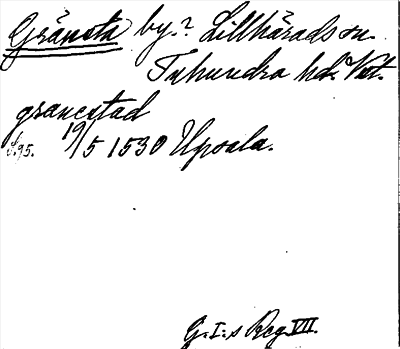 Gränsta by.? Lillhärads sn.
Tuhundra hd. Vst.
granestad
s. 95. 19/5 1530 Upsala.
G. I:s Reg. VII.